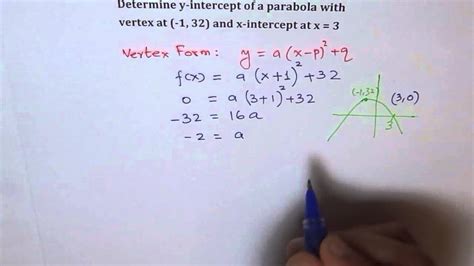 Determine y-intercept of a parabola with
vertex at (-1, 32) and x-intercept at x = 3
Vertex Form: y = a(x-p)²+q
f(x) = a(x+1)²+32
0 = a(3+1)²+32
-32 = 16a
-2 = a
(-1,32)
(3,0)
3